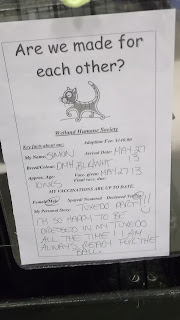 Are we made for
each other?
Welland Humane Society
Key facts about me:
Adoption Fee:
My Name: SIMON
Arrival Date: MAY 27
13
Breed/Colour: DMH BLK/WHT
Approx. Age:
Vacc. given: MAY 27 13
10 MOS
Final vacc. due:
MY VACCINATIONS ARE UP TO DATE.
Female/Male
Spayed/Neutered
Declawed
My Personal Story:
TUXEDO PARTY!!!
I'M SO HAPPY TO BE
DRESSED IN MY TUXEDO
ALL THE TIME! I AM
ALWAYS READY FOR THE
BALL.